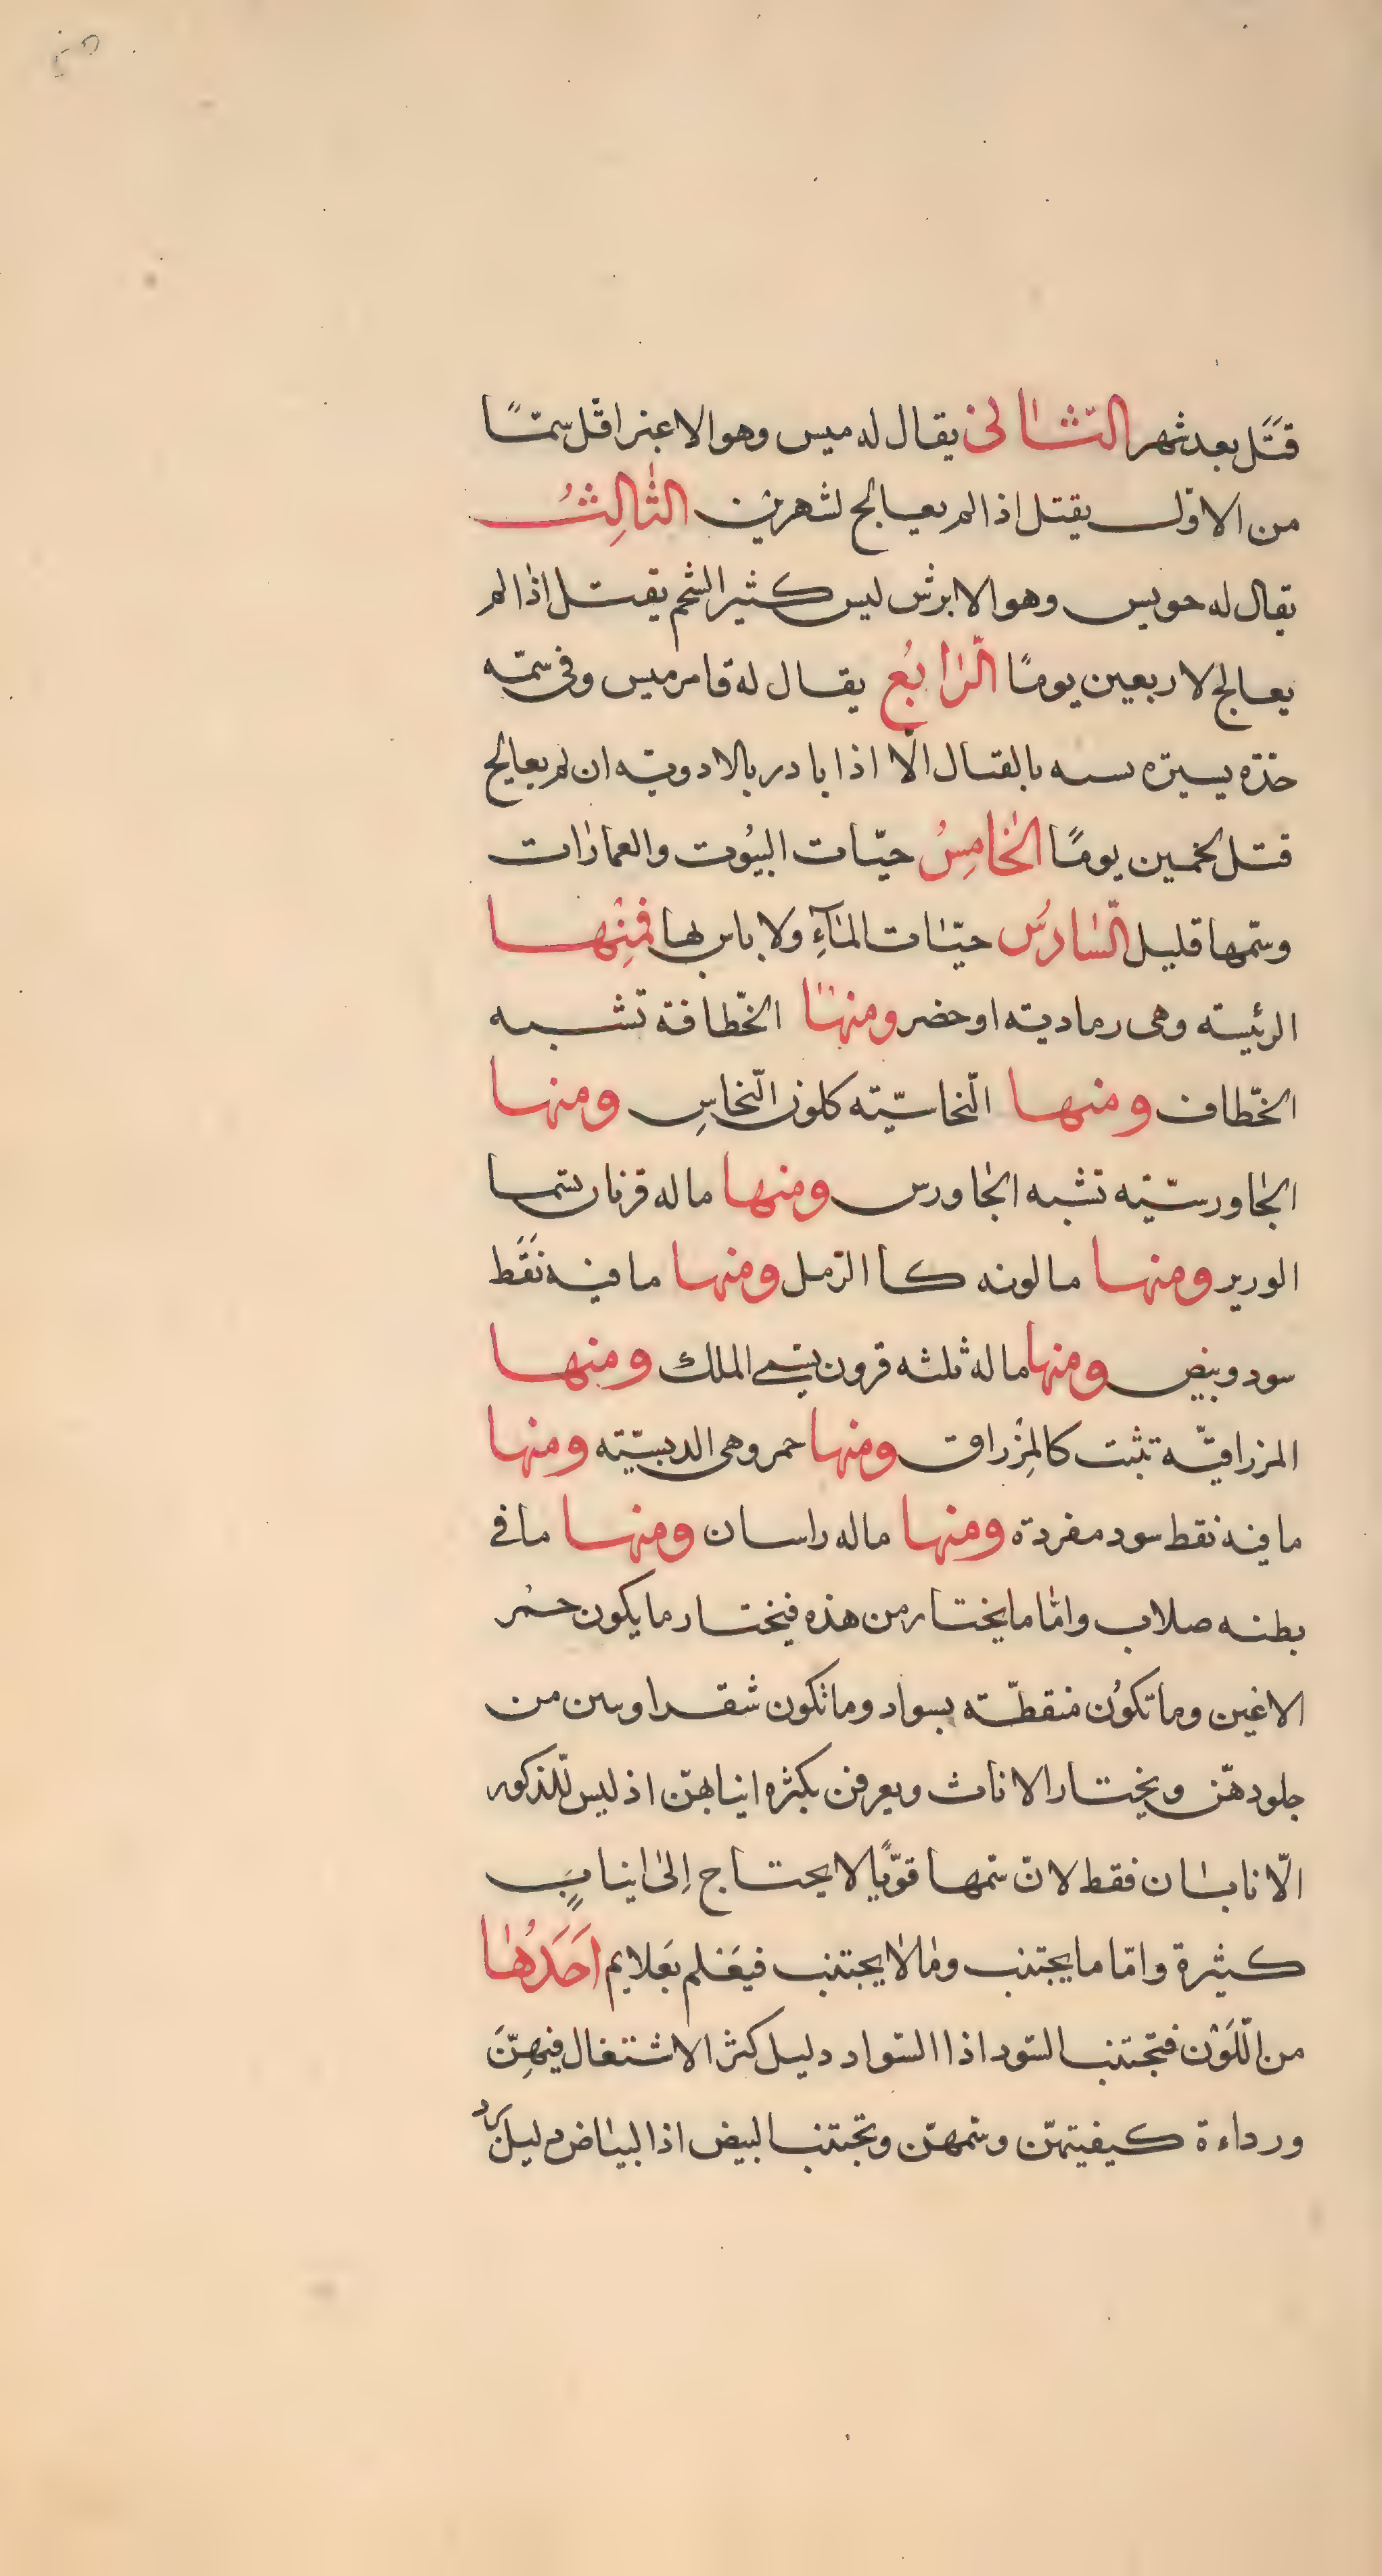 قتل بعد شهر الثانى يقال له ميس وهو الاغبر اقل سمًّا
من الاوّل يقتل اذا لم يعالج لشهرين الثالثُ
يقال له حويس وهو الابرش ليس كثير الشحم يقتل اذا لم
يعالج لاربعين يومًا الرّابعُ يقال له قامرميس وفى سمّه
يسيره بالقتال الّا اذا بادر بالادويه ان لم يعالج
قتل لخمسين يومًا الخامسُ حيّات البيُوت والعمارات
وسمّها قليل السّادسُ حيّات المآءِ ولا باس بها فمِنْها
الرئيسته وهى رماديته او حضر ومنها الخّطافة تشبه
الخّطاف ومنها النّحاسيّته كلون النّحاسِ ومنها
الجاورسيّته تشبه الجاورس ومنها ما له قرنان تسما
الورير ومنها ما لونه كا الرّمل ومنها ما فيه نَقَط
سود وبيض ومنها ما له ثلثه قرون يسمى الملك ومنها
المزراقيّه تثبت كالمِزْراق ومنها حمر وهى الدبسيّته ومنها
ما فيه نقط سود مفردة ومنها ما له راسان ومنها ما فى
بطنه صلاب وامّا ما يختار من هذه فيختار ما يكون حمُر
الاعين وما تكوُن منقطّته بسواد وما تكون شقرا من
جلودهّن ويختار الاناث ويعرفن بكثره انيابهنّ اذ ليس للّذكور
الّا نابان فقط لانّ سمّها قوّيًا لا يحتاج اِلى انيابٍ
كثيرة وامّا ما يجتنب وما لا يجتنب فيَعْلم بَعلايم اَحَدُها
من اللّوْن فتجتنب السّود اذا السّواد دليل كثر الاشتغال فيهِنّ
ورداءة كيفيتهنّ وسمهنّ وتجتنب البيض اذا البياض دليل